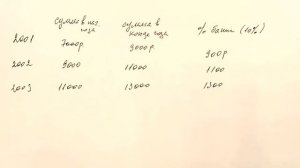 сумма в нач. года сумма в конце года % банка (10%)
2001 7000р 9000р 900р
2002 9000 11000 1100
2003 11000 13000 1300